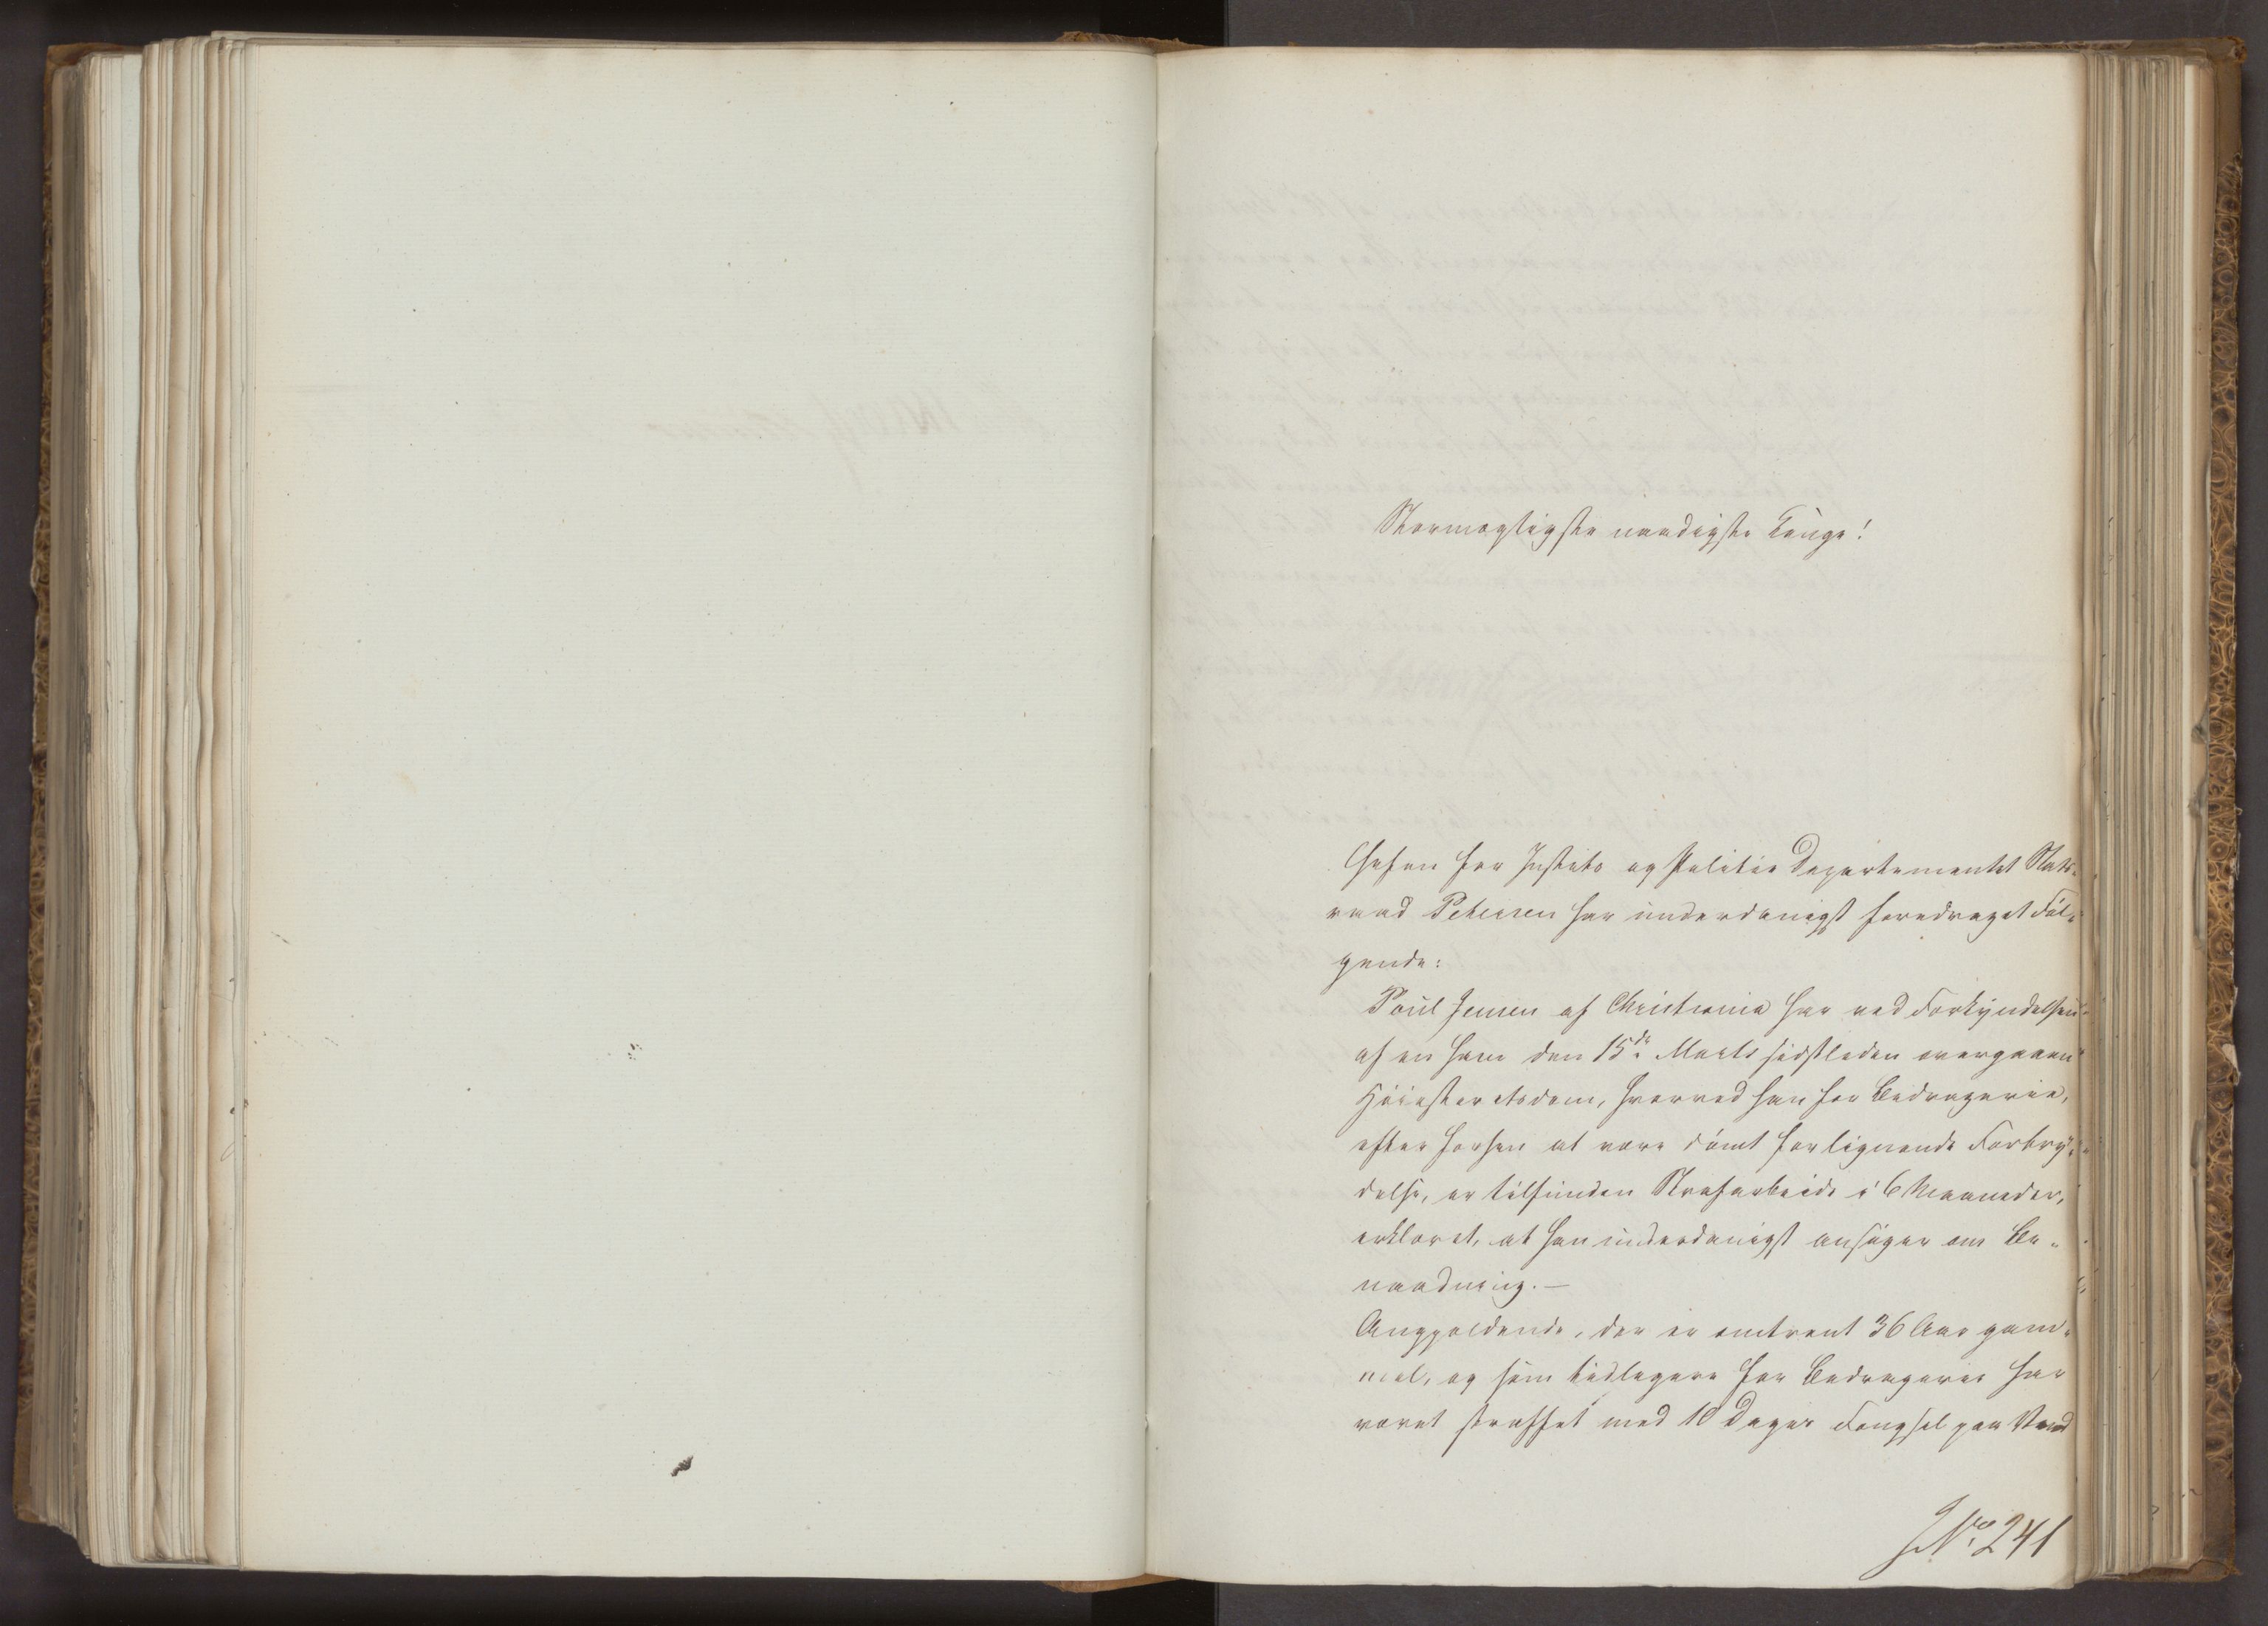 Stormægtigste naadigste Konge!
Chefen for Justits og Politie Departementet Stats-
raad Petersen har underdanigst foredraget Føl-
gende:
Poul Jensen af Christiania har ved Forkyndelsen
af en ham den 15de Marts sidstleden overgaaen
Høiesteretsdom, hvorved han for Bedragerie,
efter forhen at være dømt for lignende Forbry-
delse, er tilfunden Strafarbeide i 6 Maaneder,
erklæret, at han underdanigst ansøger om Be-
naadning.—
Angjældende, der er omtrent 36 Aar gam-
mel, og som tidligere for Bedragerie har
været straffet med 10 Dages Fængsel paa Vand
No. 241